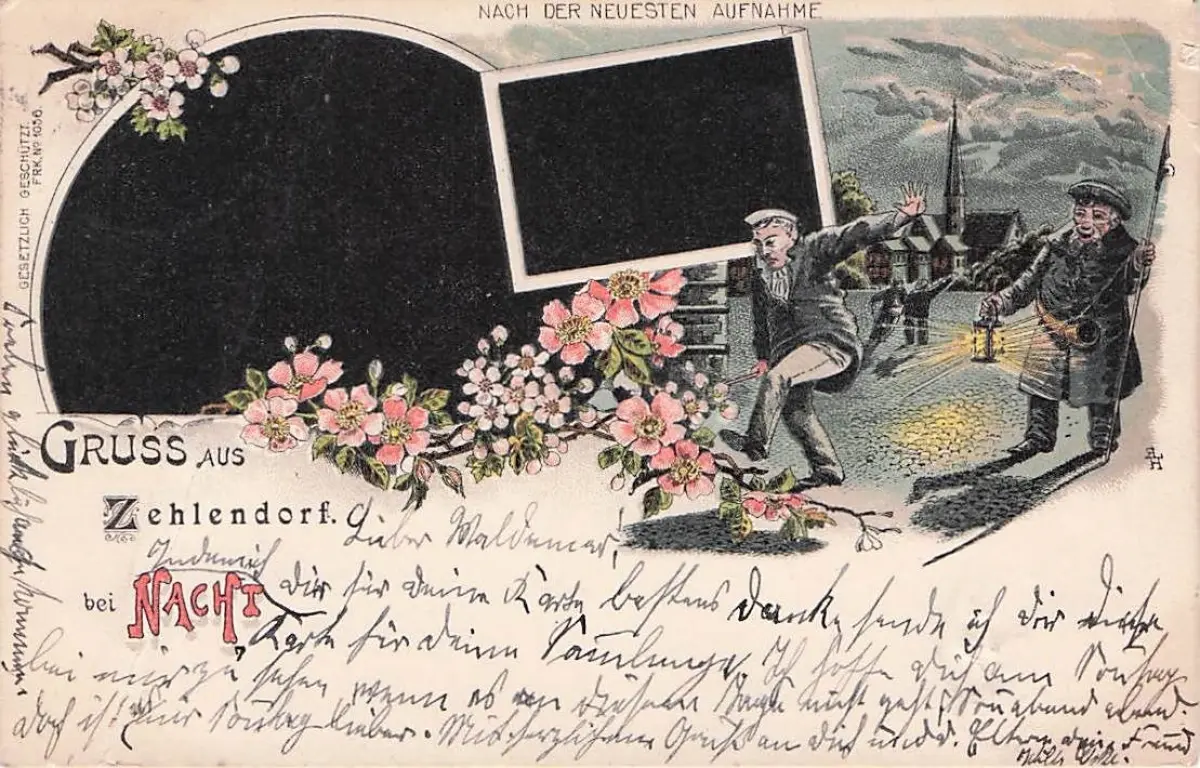 NACH DER NEUESTEN AUFNAHME
GESETZLICH GESCHÜTZT.
FRK. No 1056.
GRUSS AUS
Zehlendorf.
bei NACHT
Lieber Waldemar!
Indem ich dir für deine Karte bestens danke, sende ich dir diese
Karte für deine Sammlung. Ich hoffe dich am Sonntag
bei mir zu sehen, wenn es an diesem Tage nicht geht, Sonnabend abend.
Doch ist mir Sonntag lieber. Mit herzlichem Gruß an dich und d. Eltern dein Freund